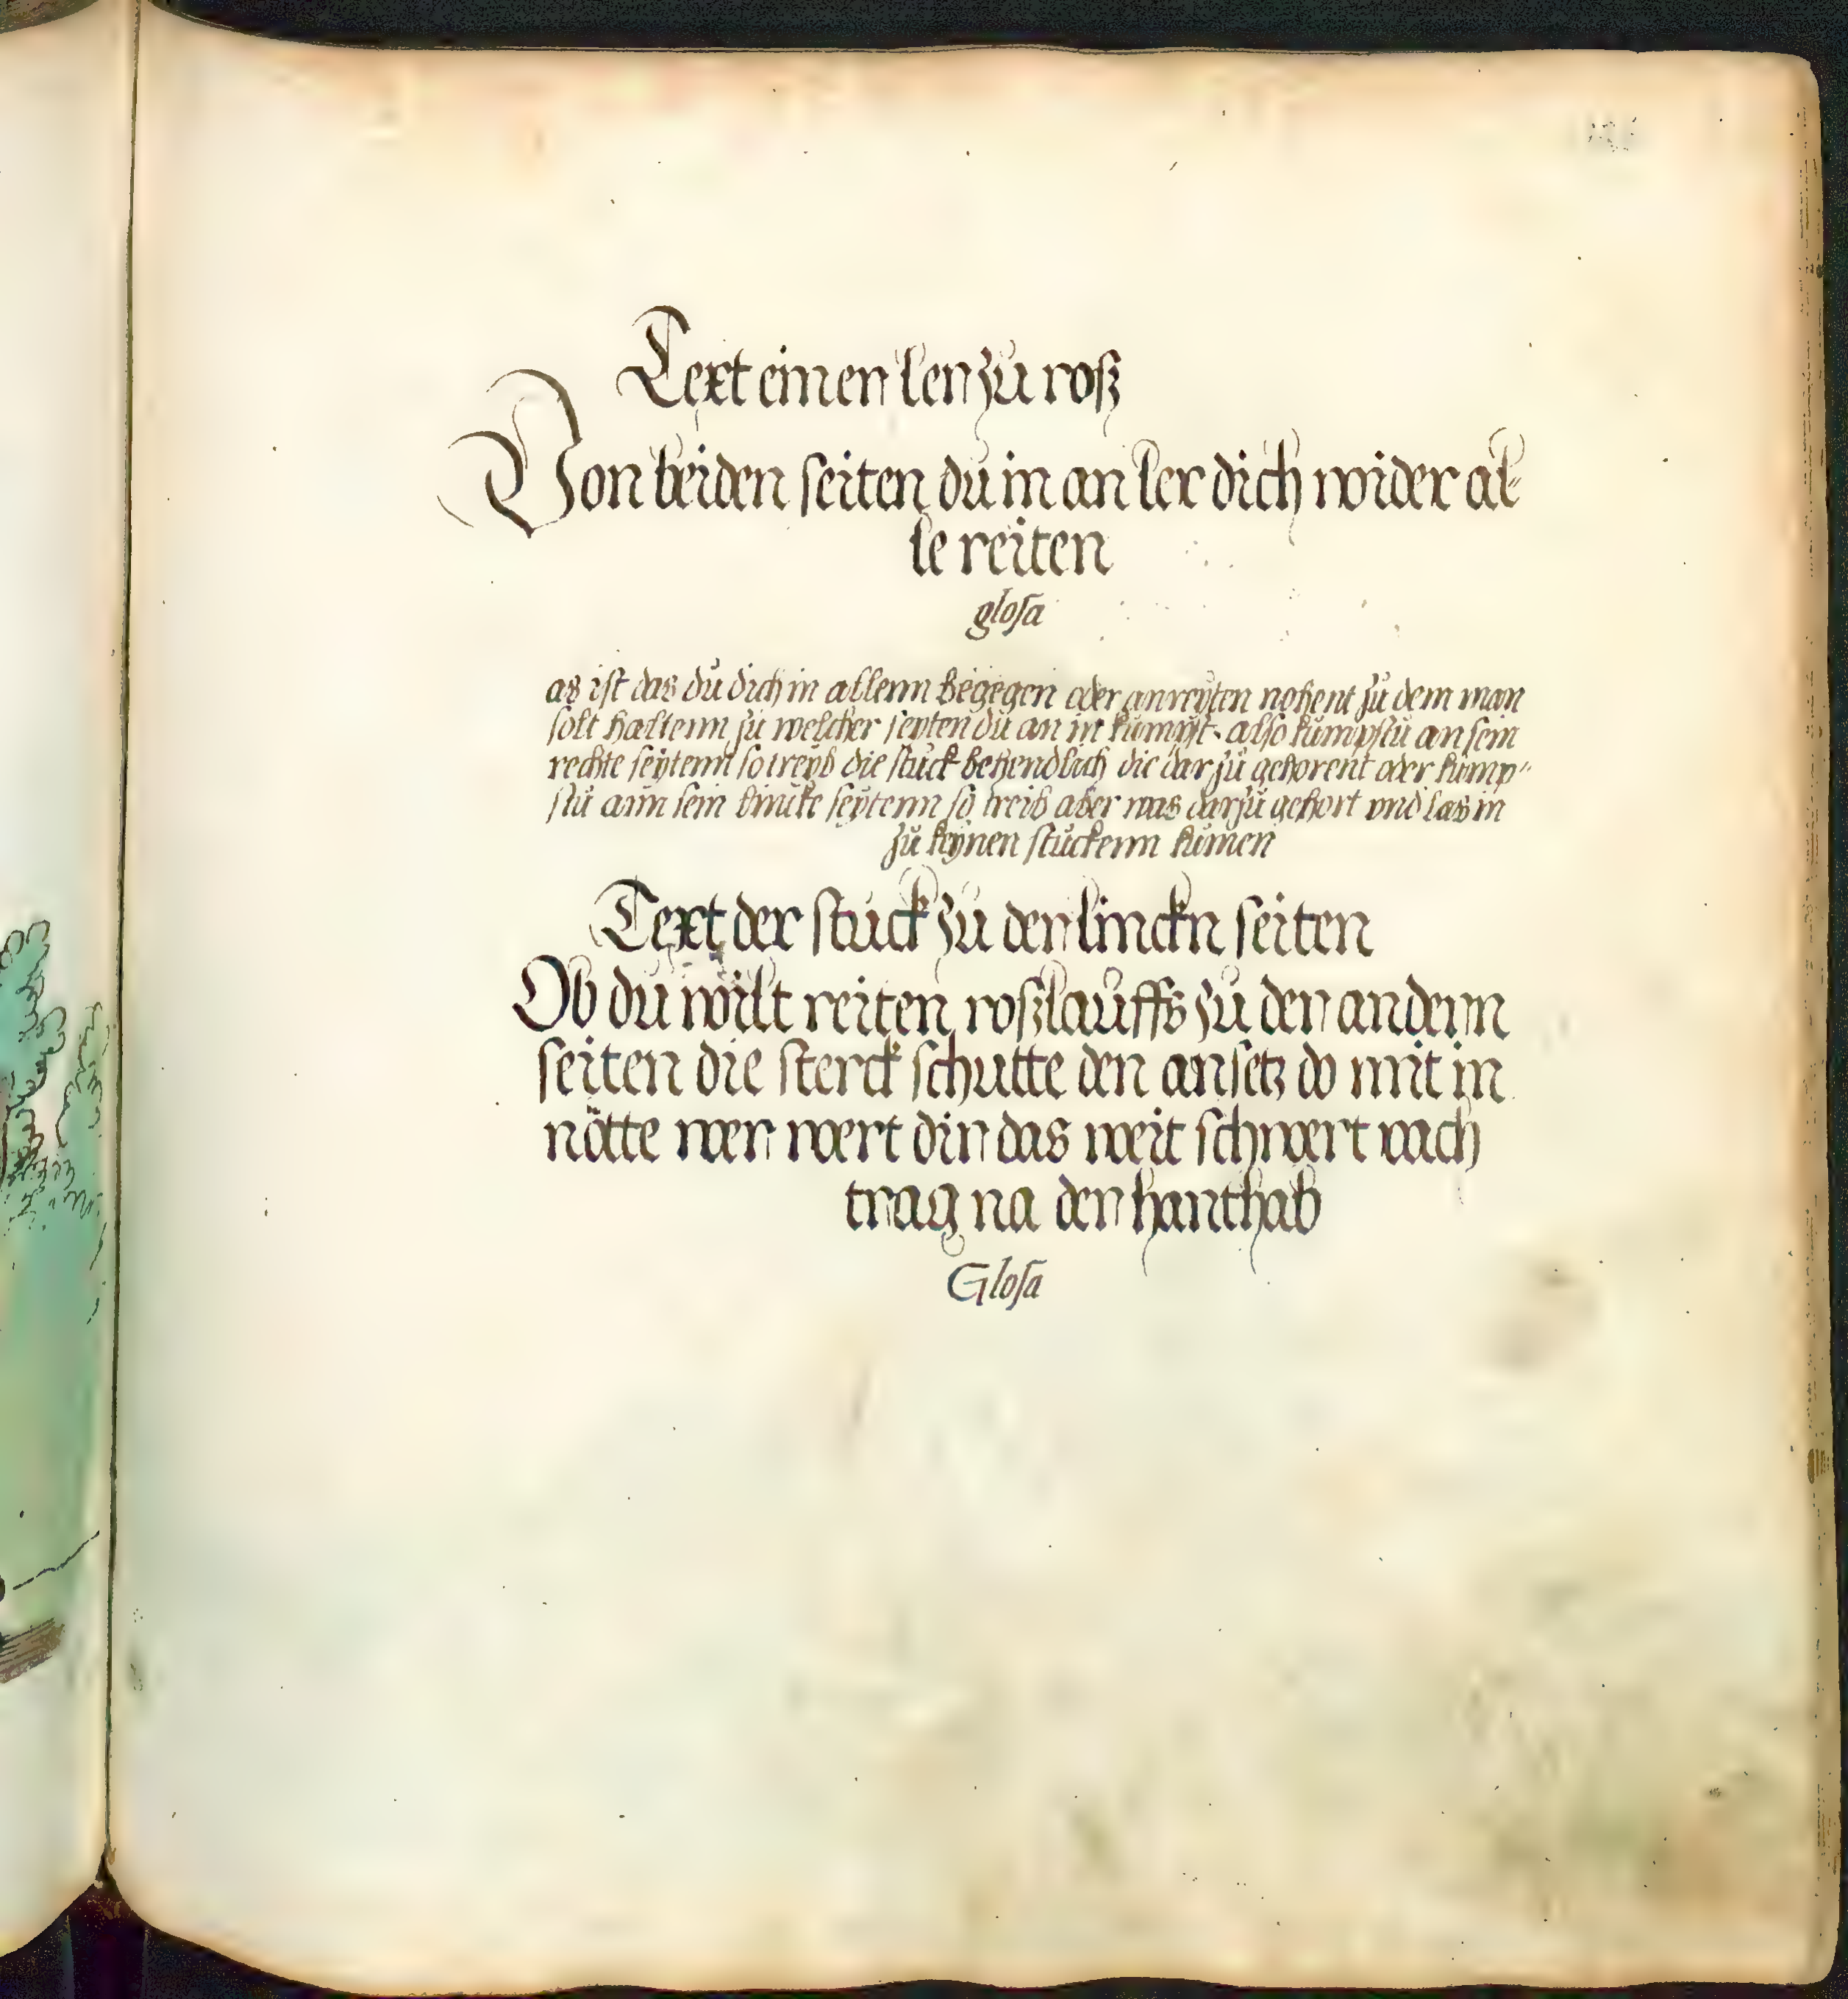 Text einen ler zu roß
Von beiden seiten du in an ler dich wider al-
le reiten
glosa
as ist das du dich in allenn begegen oder anreyten nohent zu dem man
solt haltenn zu welcher seyten du an in kumpst also kumpstu an sein
rechte seytenn so treyb die stuck behendlich die dar zu gehorent oder kump"
stu ann sein lincke seytenn so treib aber was darzu gehort vnd las in
zu keynen stuckenn kumen
Text der stuck zu den linckn seiten
Ob du wilt reiten roßlauffs zu den andernn
seiten die sterck schutte den ansetz do mit in
nötte wer wert din das weit schwert vach
trag na den hanthab
Glosa